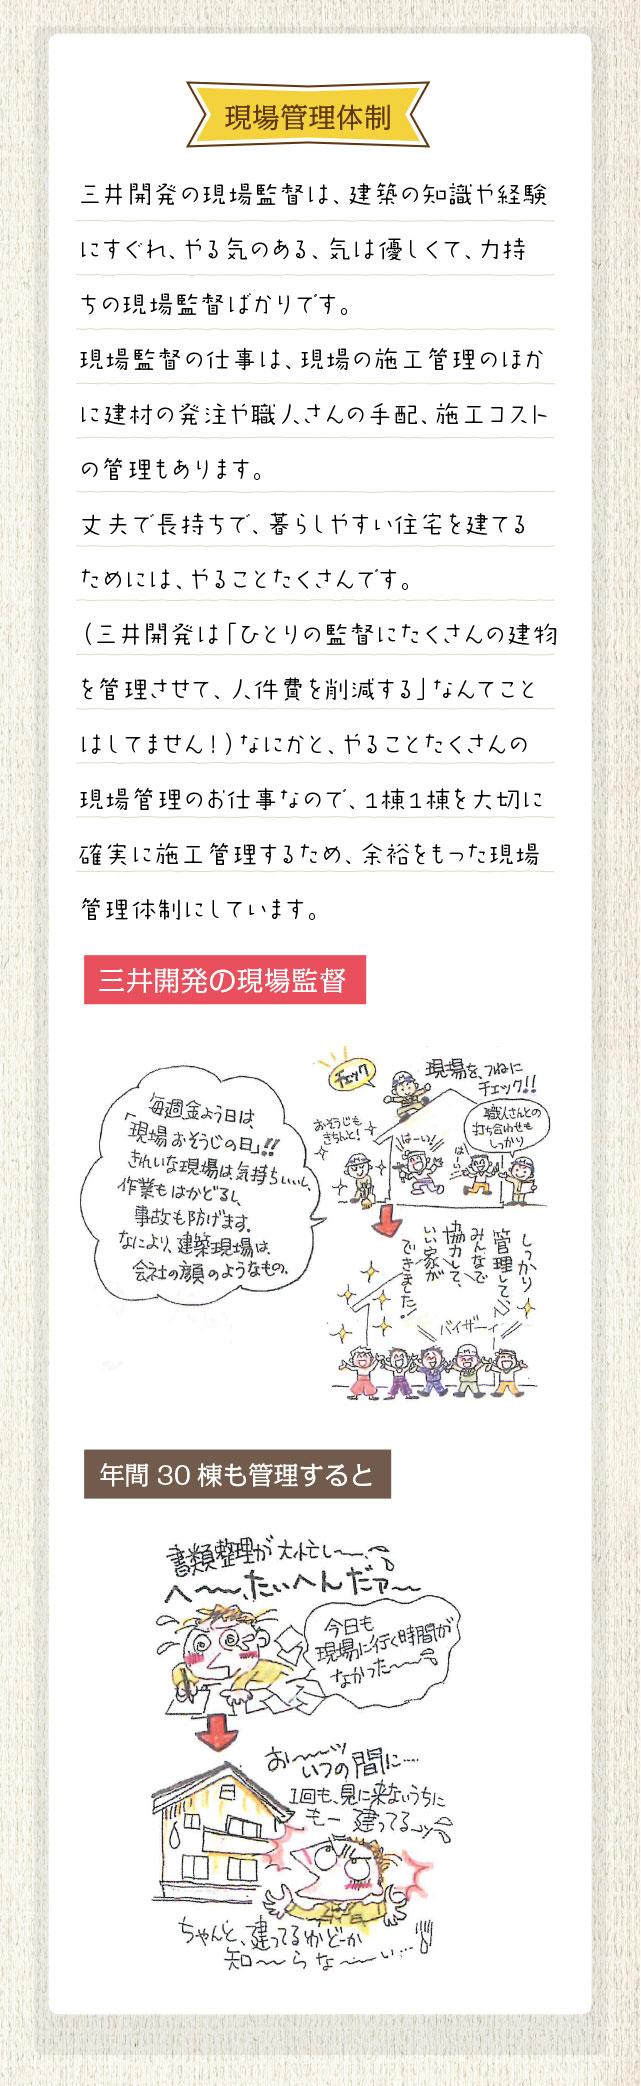 現場管理体制
三井開発の現場監督は、建築の知識や経験
にすぐれ、やる気のある、気は優しくて、力持
ちの現場監督ばかりです。
現場監督の仕事は、現場の施工管理のほか
に建材の発注や職人さんの手配、施工コスト
の管理もあります。
丈夫で長持ちで、暮らしやすい住宅を建てる
ためには、やることたくさんです。
（三井開発は「ひとりの監督にたくさんの建物
を管理させて、人件費を削減する」なんてこと
はしてません！）なにかと、やることたくさんの
現場管理のお仕事なので、1棟1棟を大切に
確実に施工管理するため、余裕をもった現場
管理体制にしています。
三井開発の現場監督
毎週金よう日は
「現場おそうじの日」!!
きれいな現場は気持ちいいし、
作業もはかどるし、
事故も防げます。
なにより、建築現場は、
会社の顔のようなもの。
チェック
現場を、つねに
チェック!!
おそうじも
きちんと!
はーい!
はーい
職人さんとの
打ち合わせも
しっかり
しっかり
管理して、
みんなで
協力して、
いい家が
できました!
バイザーイ
年間 30 棟も管理すると
書類整理が大忙し〜〜、
へ〜〜、たいへんだァ〜
今日も
現場に行く時間が
なかった〜〜
お〜〜ッ
いつの間に....
1回も、見に来ないうちに
もー 建ってる〜ッ
ちゃんと、建ってるかどーか
知〜らな〜い...